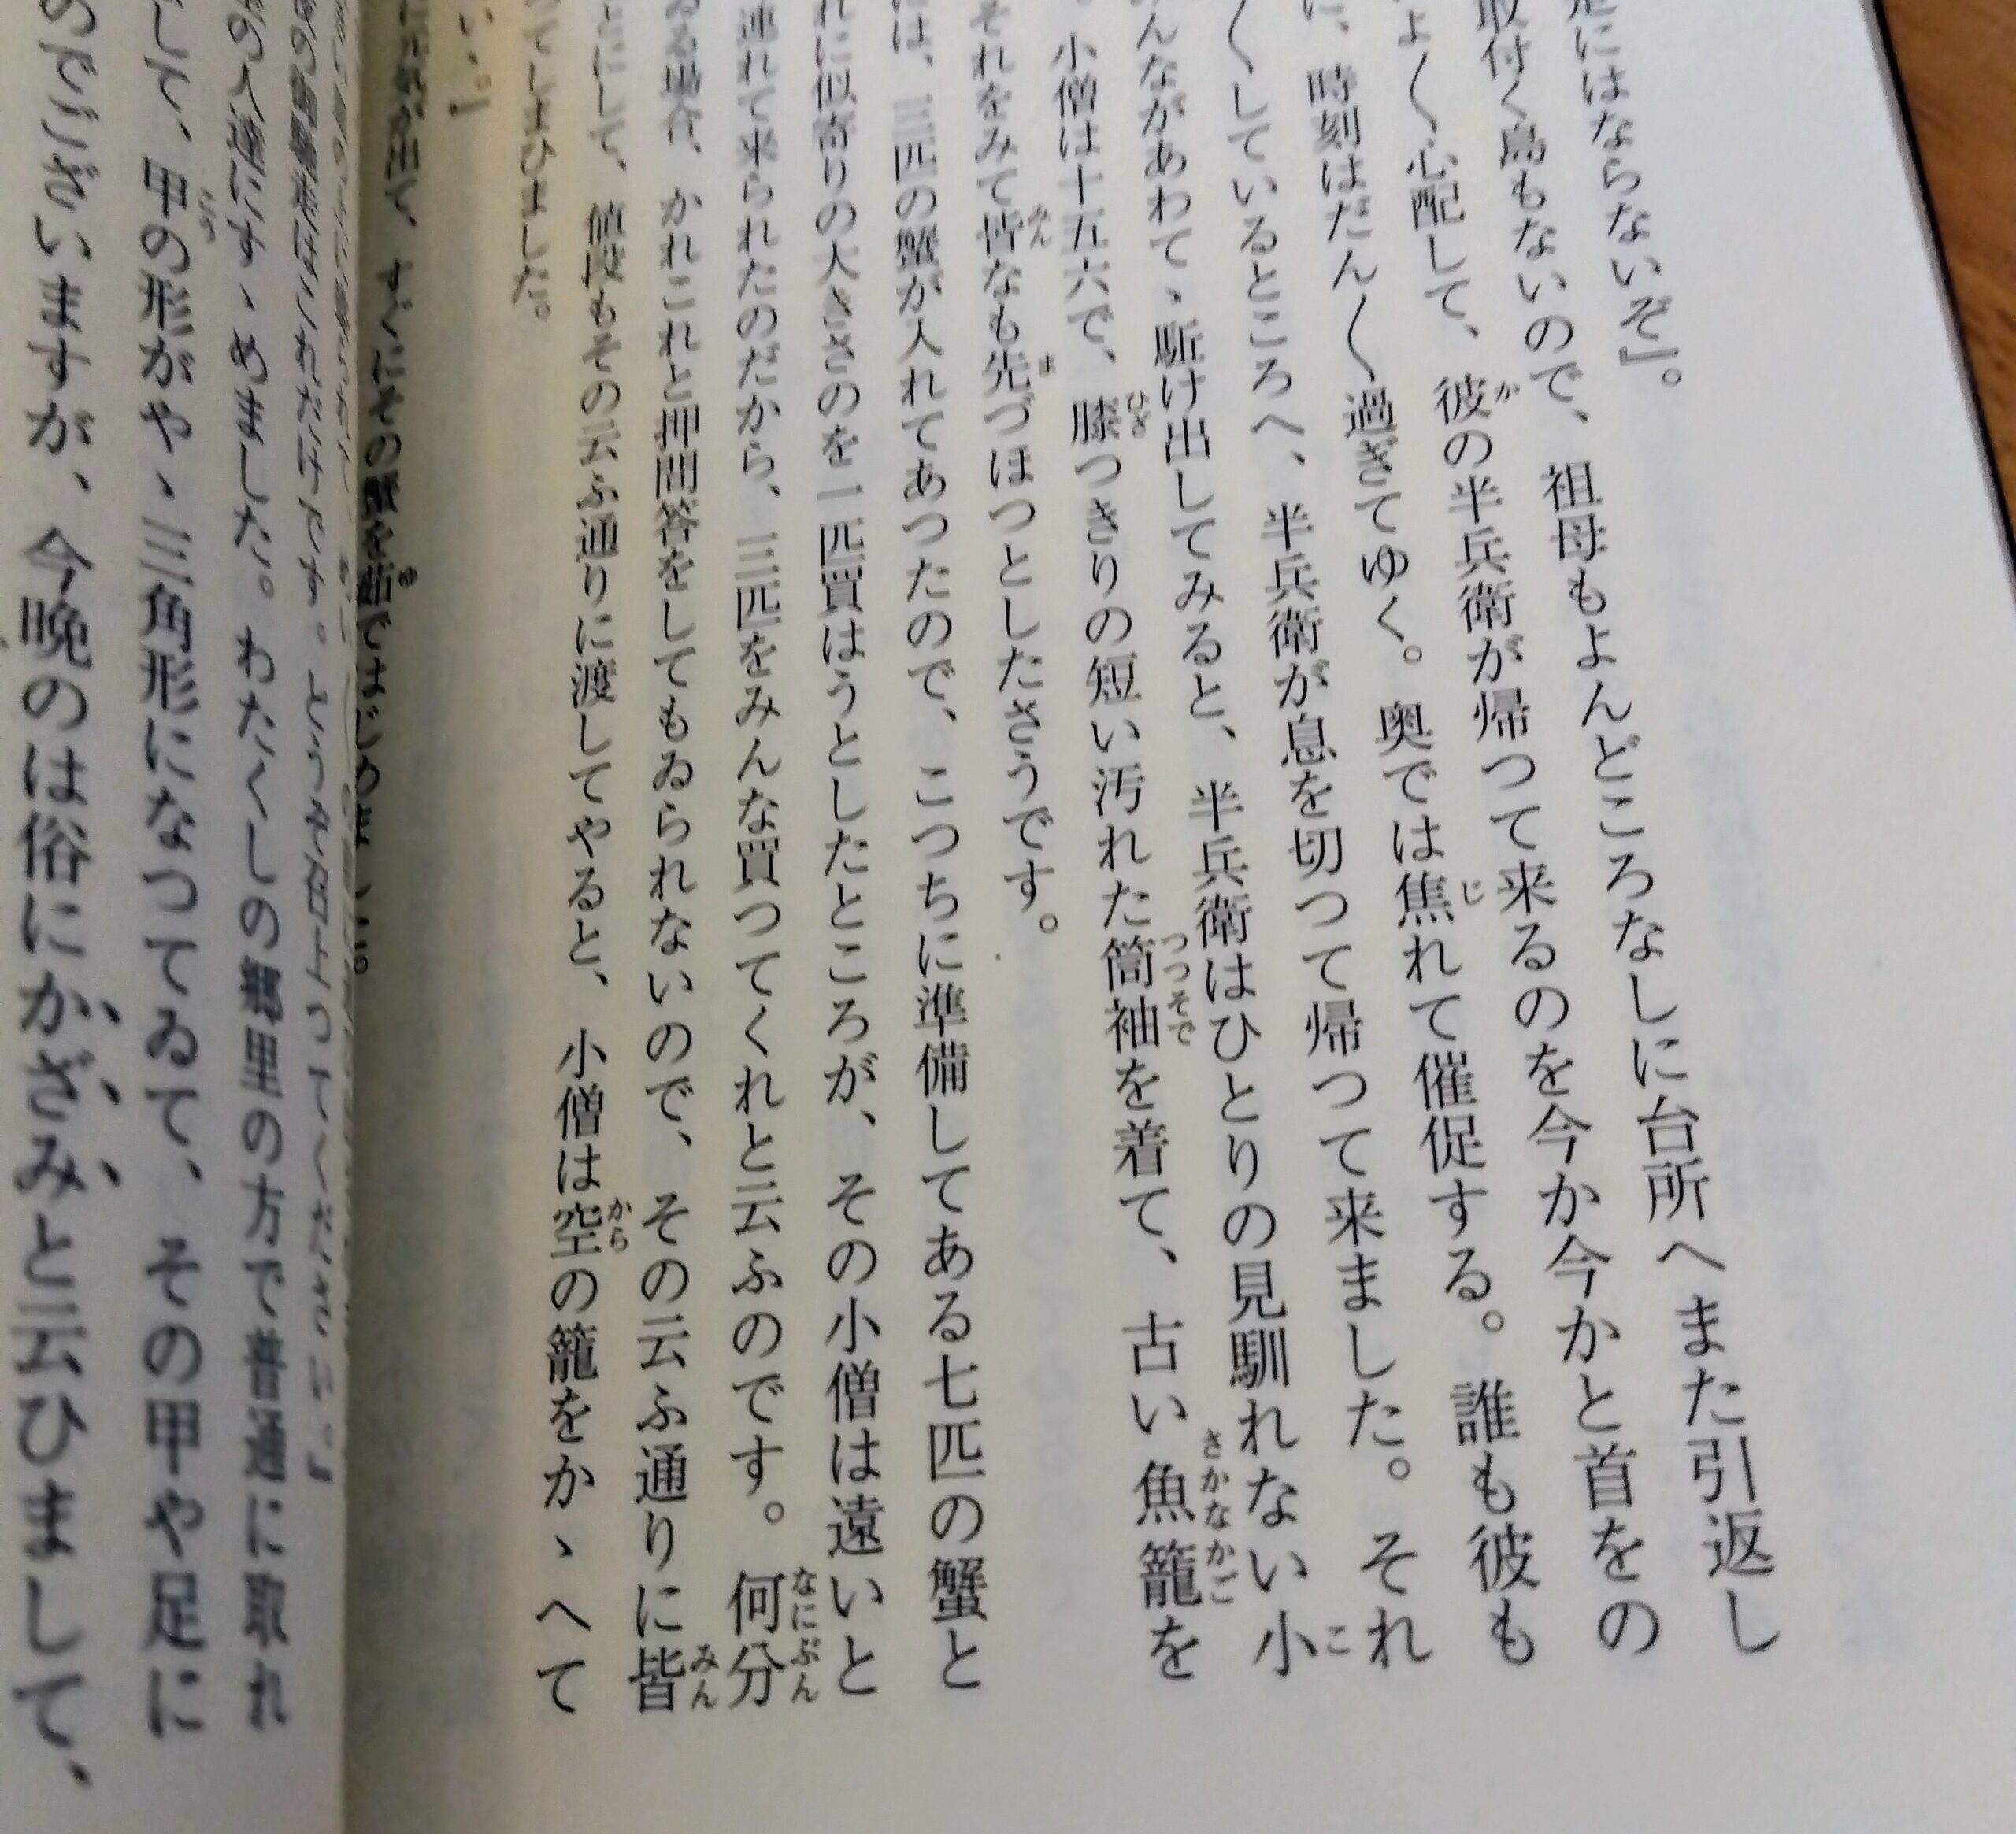 にはならないぞ』。
取付く島もないので、祖母もよんどころなしに台所へまた引返し
よ〳〵心配して、彼の半兵衛が帰つて来るのを今か今かと首をの
に、時刻はだん〳〵過ぎてゆく。奥では焦れて催促する。誰も彼も
しているところへ、半兵衛が息を切つて帰つて来ました。それ
んながあわてゝ駈け出してみると、半兵衛はひとりの見馴れない小
。小僧は十五六で、膝つきりの短い汚れた筒袖を着て、古い魚籠を
それをみて皆なも先づほつとしたさうです。
には、三匹の蟹が入れてあつたので、こつちに準備してある七匹の蟹と
れに似寄りの大きさのを一匹買はうとしたところが、その小僧は遠いと
連れて来られたのだから、三匹をみんな買つてくれと云ふのです。何分
ゐる場合、かれこれと押問答をしてもゐられないので、その云ふ通りに皆
とにして、値段もその云ふ通りに渡してやると、小僧は空の籠をかゝへて
てしまひました。
い。』
が出て、すぐにその蟹を茹ではじめました。
の御馳走はこれだけです。どうぞ召上つてください。』
の人達にすゝめました。わたくしの郷里の方で普通に取れ
して、甲の形がやゝ三角形になつてゐて、その甲や足に
のでございますが、今晩のは俗にかざみと云ひまして、